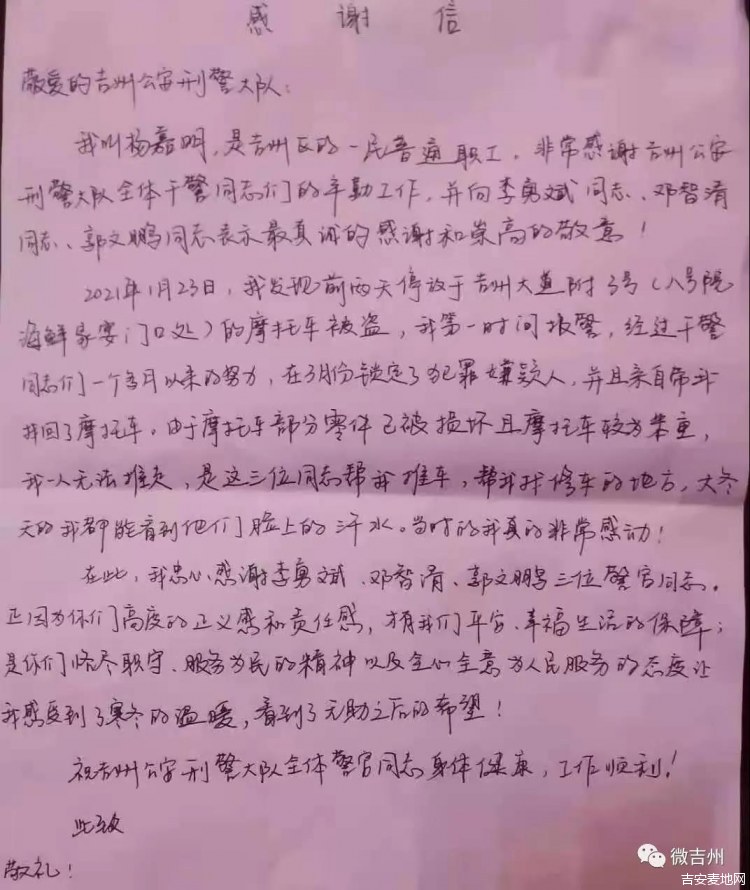 感谢信
敬爱的吉州公安刑警大队:
我叫杨嘉明,是吉州区的一民普通职工。非常感谢吉州公安
刑警大队全体干警同志们的辛勤工作,并向李勇斌同志、邓智清
同志、郭文鹏同志表示最真诚的感谢和崇高的敬意!
2021年1月23日,我发现前两天停放于吉州大道附3号(八号院
海鲜家宴门口处)的摩托车被盗,我第一时间报警,经过干警
同志们一个多月以来的努力,在3月份锁定了犯罪嫌疑人,并且亲自带我
找回了摩托车。由于摩托车部分零件已被损坏且摩托车较为笨重,
我一人无法推走,是这三位同志帮我推车,帮我找修车的地方,大冬
天的我都能看到他们脸上的汗水。当时的我真的非常感动!
在此,我忠心感谢李勇斌、邓智清、郭文鹏三位警官同志。
正因为你们高度的正义感和责任感,才有我们平安、幸福生活的保障;
是你们恪尽职守、服务为民的精神以及全心全意为人民服务的态度让
我感受到了寒冬的温暖,看到了无助之后的希望!
祝吉州公安刑警大队全体警官同志身体健康,工作顺利!
此致
敬礼!
微吉州
吉安麦地网